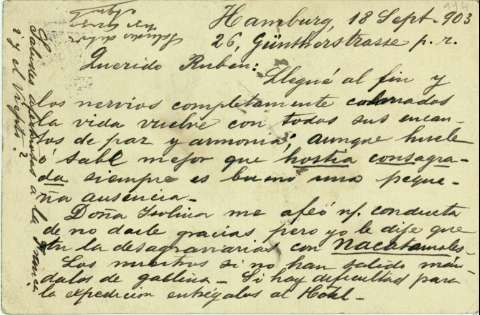 Hamburg, 18 Sept. 903
26, Güntherstrasse p. r.
Querido Ruben:
Llegué al fin y
los nervios completamente calmados
la vida vuelve con todas sus encan-
tos de paz y armonía; aunque huele
é sabe mejor que hostia consagra-
da siempre es bueno una peque-
ña ausencia.
Doña me afeó mi conducta
de no darle gracias, pero yo le dije que
tu la desagraviarias con Nacatamales.
Los muchos si no han salido mán-
dalos de gallina. Si hay dificultad para
la expedicion entrégalos al Hotel.
Saludes afectuosas á la
y el